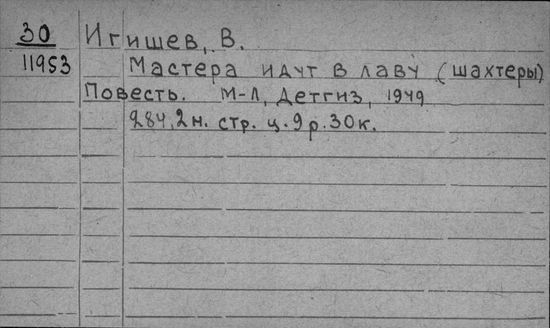 30
11953
Игишев, В.
Мастера идут в лаву (шахтеры)
Повесть. М-Л, Детгиз, 1949
284,2н. стр. ц. 9р. 30к.